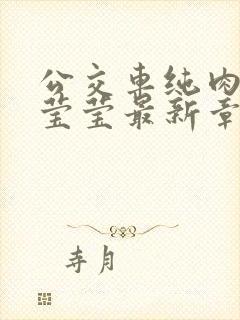 公交车纯肉
莹莹最新章
寺月